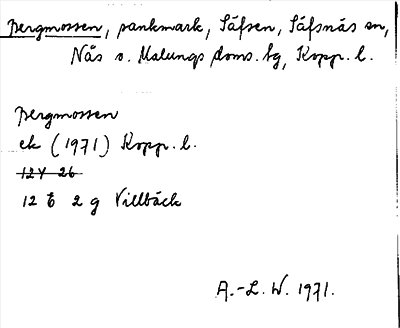 Bergmossen, sankmark, Säfsen, Säfsnäs sn,
Nås o. Malungs doms. tg, Kopp. l.
Bergmossen
ek (1971) Kopp. l.
12 Y 26
12 E 2 g Villbäck
A.-L. W. 1971.